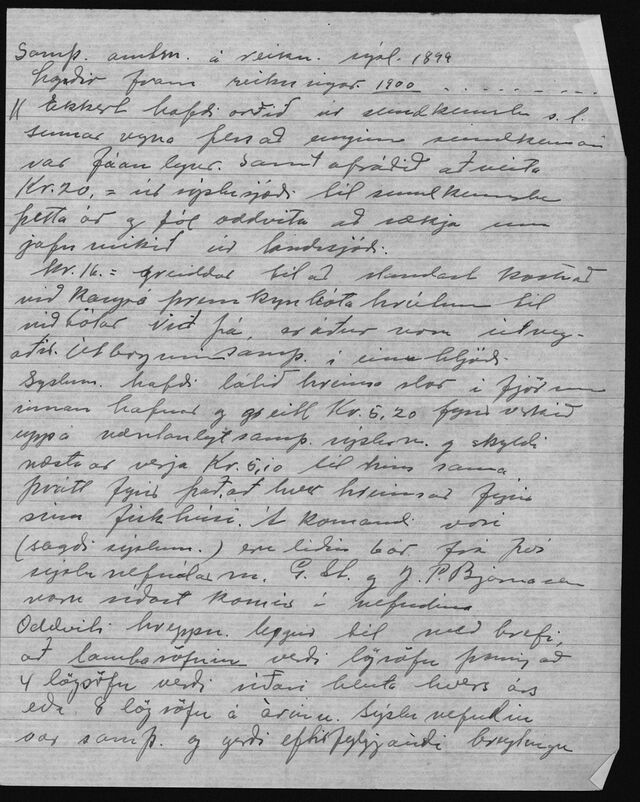 Samþ. amtm. á reikn. sýsl. 1899
lagðir fram reikningar 1900 . . . . . . . .
Ekkert hafði orðið úr sundkenslu s.l.
sumar vegna þess að enginn sundkennari
var fáanlegur. Samt afráðið að veita
Kr. 20,= úr sýslusjóði til sundkenslu
þetta ár og fól oddvita að sækja um
jafnmikið úr landssjóði.
Kr. 16.= greiddar til að standast kostnað
við kaup á þrem kynbótahrútum til
viðbótar við þá, er áður voru útveg-
aðir. Útborgunin samþ. í einu hljóði.
Sýslum. hafði látið hreinsa slor í fjörunni
innan hafnar og greitt Kr. 5,20 fyrir verkið
uppá væntanlegt samþ. sýslun. og skyldi
næsta ár verja Kr. 5,10 til hins sama
þrátt fyrir það, að hver hreinsar fyrir
sínu fiskhúsi. Á komandi vori
(sagði sýslum.) eru liðin 6 ár frá því
sýslunefndarm. G. St. og J. P. Bjarnason
voru síðast kosnir í nefndina
Oddviti hreppsn. leggur til með bréfi,
að lambasöfnin verði lögsöfn þannig að
4 lögsöfn verði síðari hluta hvers árs
eða 8 lögsöfn á árinu. Sýslunefndin
var samþ. og gerði eftirfylgjandi breytingu